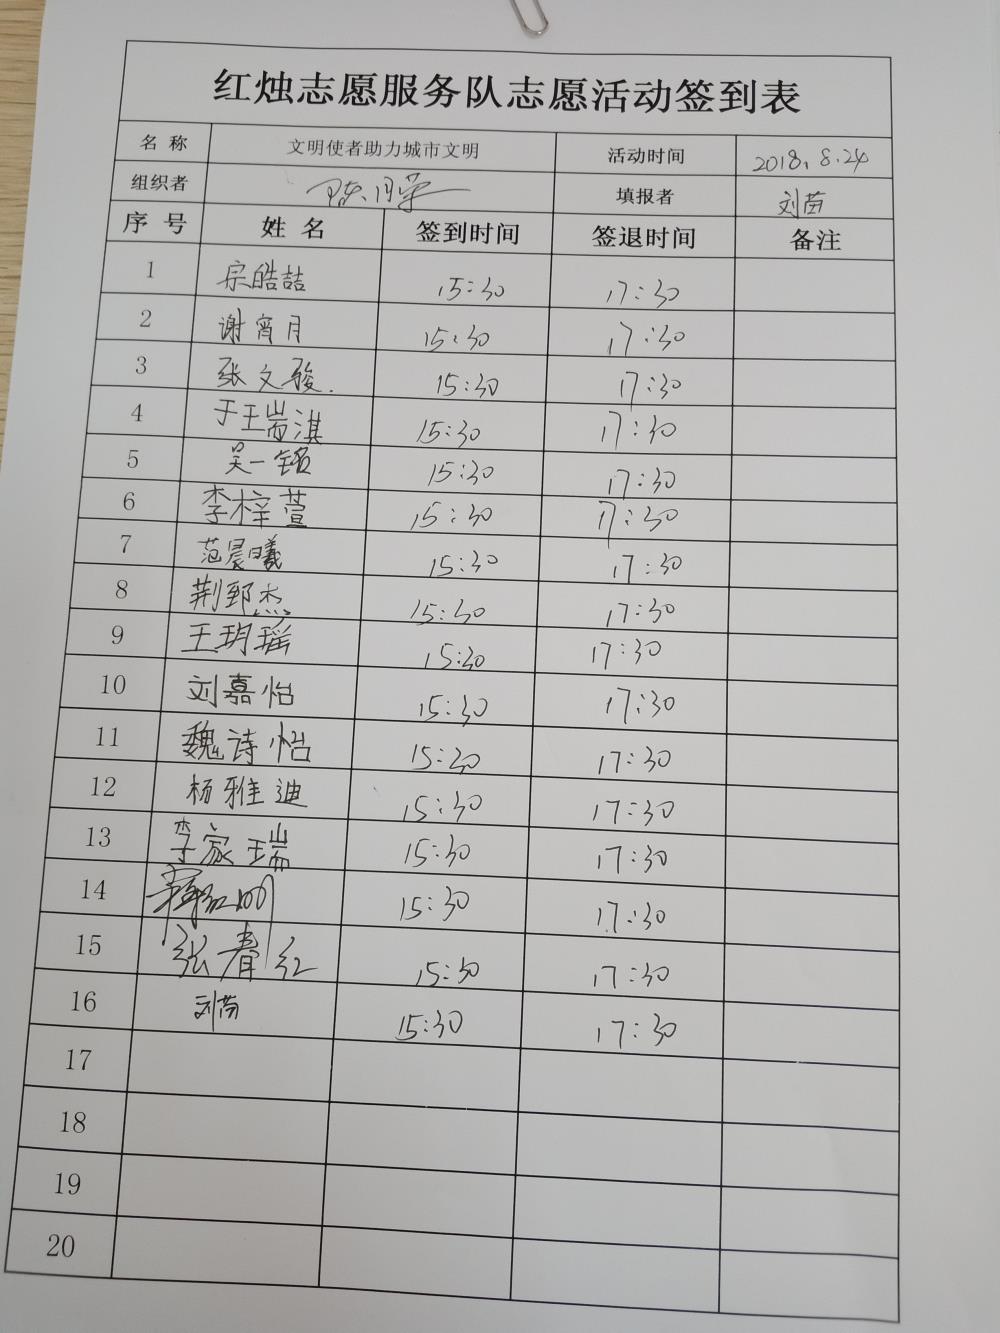 红烛志愿服务队志愿活动签到表
名 称 文明使者助力城市文明 活动时间 2018.8.24
组织者 填报者 刘苗
序 号 姓 名 签到时间 签退时间 备注
1 宗皓喆 15:30 17:30
2 谢宵月 15:30 17:30
3 张文骏. 15:30 17:30
4 于王耑淇 15:30 17:30
5 吴一铭 15:30 17:30
6 李梓萱 15:30 17:30
7 范晨曦 15:30 17:30
8 荆郅杰 15:30 17:30
9 王玥瑶 15:30 17:30
10 刘嘉怡 15:30 17:30
11 魏诗怡 15:30 17:30
12 杨雅迪 15:30 17:30
13 李家瑞 15:30 17:30
14 15:30 17:30
15 张春红 15:30 17:30
16 刘苗 15:30 17:30
17
18
19
20